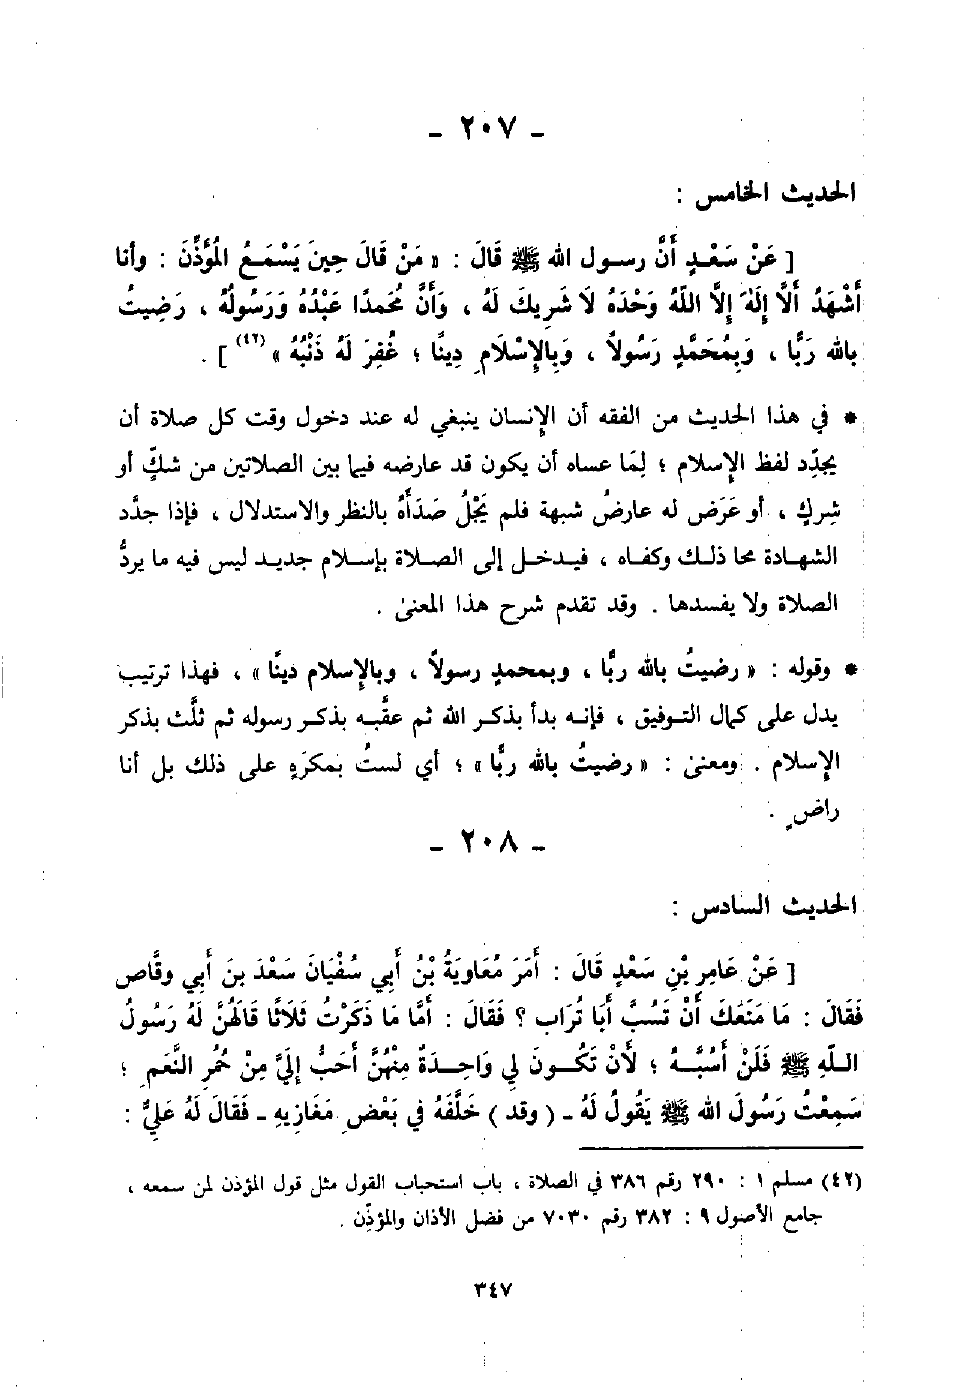 - ٢٠٧ -
الحديث الخامس :
[ عَنْ سَعْـدٍ أَنَّ رسـول الله ﷺ قَالَ : « مَنْ قَالَ حِينَ يَسْمَـعُ المُؤَذِّنَ : وأنا
أَشْهَدُ أَلَّا إِلَهَ إِلَّا اللَّهُ وَحْدَهُ لَا شَرِيكَ لَهُ ، وَأَنَّ مُحَمدًا عَبْدُهُ وَرَسُولُهُ ، رَضِيتُ
بالله رَبًّا ، وَبِمُحَمَّدٍ رَسُولاً ، وَبِالإِسْلَامِ دِينًا ؛ غُفِرَ لَهُ ذَنْبُهُ » (٤٢) ] .
* في هذا الحديث من الفقه أن الإنسان ينبغي له عند دخول وقت كل صلاة أن
يجدِّد لفظ الإسلام ؛ لِمَا عساه أن يكون قد عارضه فيما بين الصلاتين من شكٍّ أو
شِركٍ ، أو عَرَض له عارضُ شبهة فلم يَجْلُ صَدَأَهُ بالنظر والاستدلال ، فإذا جدَّد
الشهـادة محا ذلـك وكفـاه ، فيـدخـل إلى الصـلاة بإسـلام جديـد ليس فيه ما يردُّ
الصلاة ولا يفسدها . وقد تقدم شرح هذا المعنىٰ .
* وقوله : « رضيتُ بالله ربًّا ، وبمحمدٍ رسولاً ، وبالإسلام دينًا » ، فهذا ترتيب
يدل على كمال التـوفيق ، فإنـه بدأ بذكـر الله ثم عقَّبـه بذكـر رسوله ثم ثلَّث بذكر
الإسلام . ومعنىٰ : « رضيتُ بالله ربًّا » ؛ أي لستُ بمكرَهٍ على ذلك بل أنا
راضٍ .
- ٢٠٨ -
الحديث السادس :
[ عَنْ عَامِرِ بْنِ سَعْدٍ قَالَ : أَمَرَ مُعَاوِيَةُ بْنُ أَبِي سُفْيَانَ سَعْدَ بنَ أَبِي وقَّاص
فَقَالَ : مَا مَنَعَكَ أَنْ تَسُبَّ أَبَا تُرَاب ؟ فَقَالَ : أَمَّا مَا ذَكَرْتُ ثَلَاثًا قَالَهُنَّ لَهُ رَسُولُ
اللـهِ ﷺ فَلَنْ أَسُبَّـهُ ؛ لَأَنْ تَكُـونَ لِي وَاحِـدَةٌ مِنْهُنَّ أَحَبُّ إِلَيَّ مِنْ حُمُرِ النَّعَمِ ؛
سَمِعْتُ رَسُولَ الله ﷺ يَقُولُ لَهُ ـ ( وقد ) خَلَّفَهُ فِي بَعْضِ مَغَازِيهِ ـ فَقَالَ لَهُ عَلِيٌّ :
(٤٢) مسلم ١ : ٢٩٠ رقم ٣٨٦ في الصلاة ، باب استحباب القول مثل قول المؤذن لمن سمعه ،
جامع الأصول ٩ : ٣٨٢ رقم ٧٠٣٠ من فضل الأذان والمؤذِّن .
٣٤٧